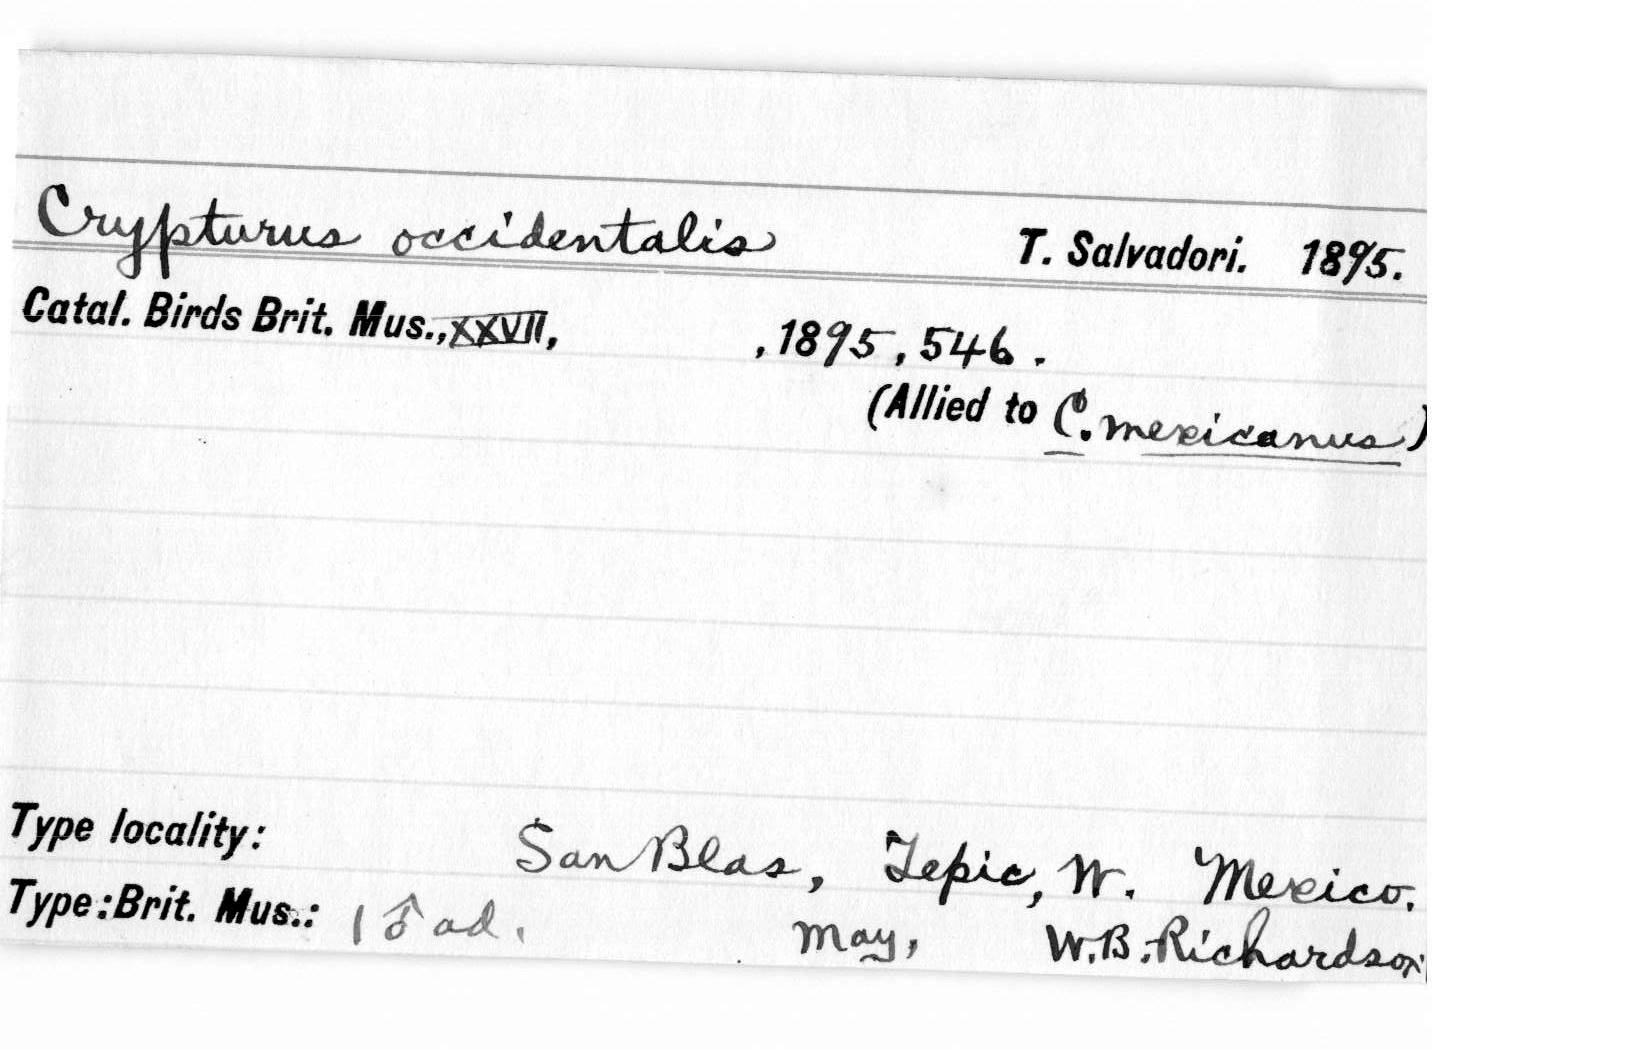 Crypturus occidentalis T. Salvadori. 1895.
Catal. Birds Brit. Mus., XXVII, , 1895, 546.
(Allied to C. mexicanus)
Type locality: San Blas, Tepic, W. Mexico.
Type: Brit. Mus.: 1 ♂ ad. May, W.B. Richardson